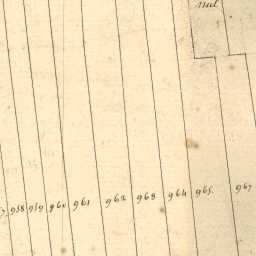 958 959 960 961 962 963 964 965. 967